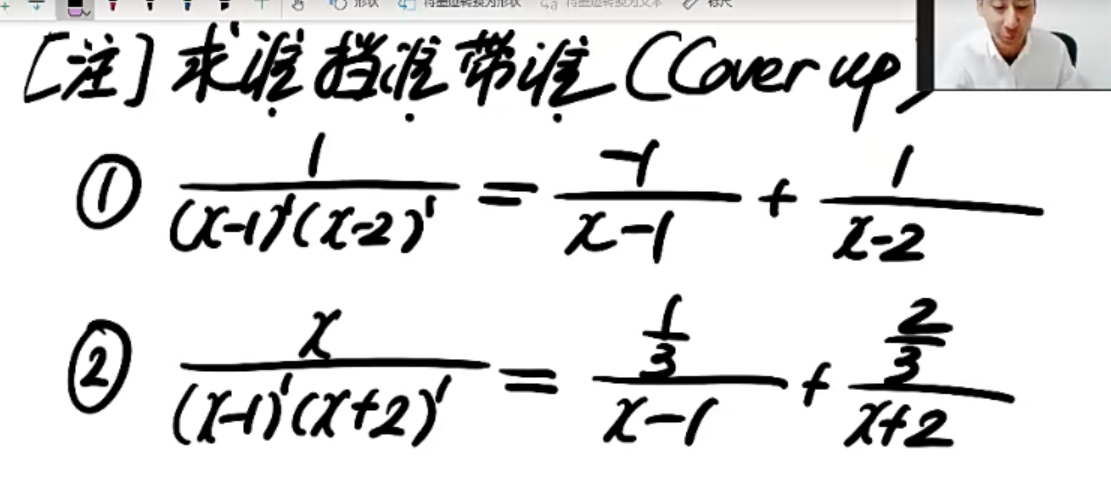 形状 将墨迹转换为形状 将墨迹转换为文本 标尺
[注] 求谁挡谁带谁 (Cover up)
① 1/((x-1)¹(x-2)¹) = -1/(x-1) + 1/(x-2)
② x/((x-1)¹(x+2)¹) = (1/3)/(x-1) + (2/3)/(x+2)